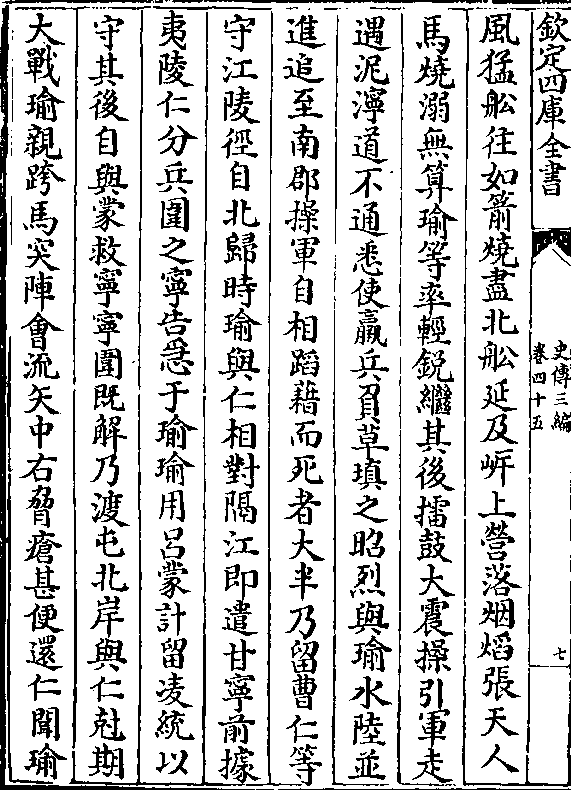 欽定四庫全書
史傳三編
卷四十五
七
風猛船往如箭燒盡北船延及岍上營落烟熖張天人
馬燒溺無算瑜等率輕銳繼其後擂鼓大震操引軍走
遇泥濘道不通悉使羸兵負草填之昭烈與瑜水陸並
進追至南郡操軍自相蹈藉而死者大半乃留曹仁等
守江陵徑自北歸時瑜與仁相對隔江即遣甘寧前據
夷陵仁分兵圍之寧告急于瑜瑜用呂蒙計留凌統以
守其後自與蒙救寧寧圍既解乃渡屯北岸與仁尅期
大戰瑜親跨馬突陣會流矢中右脅瘡甚便還仁聞瑜